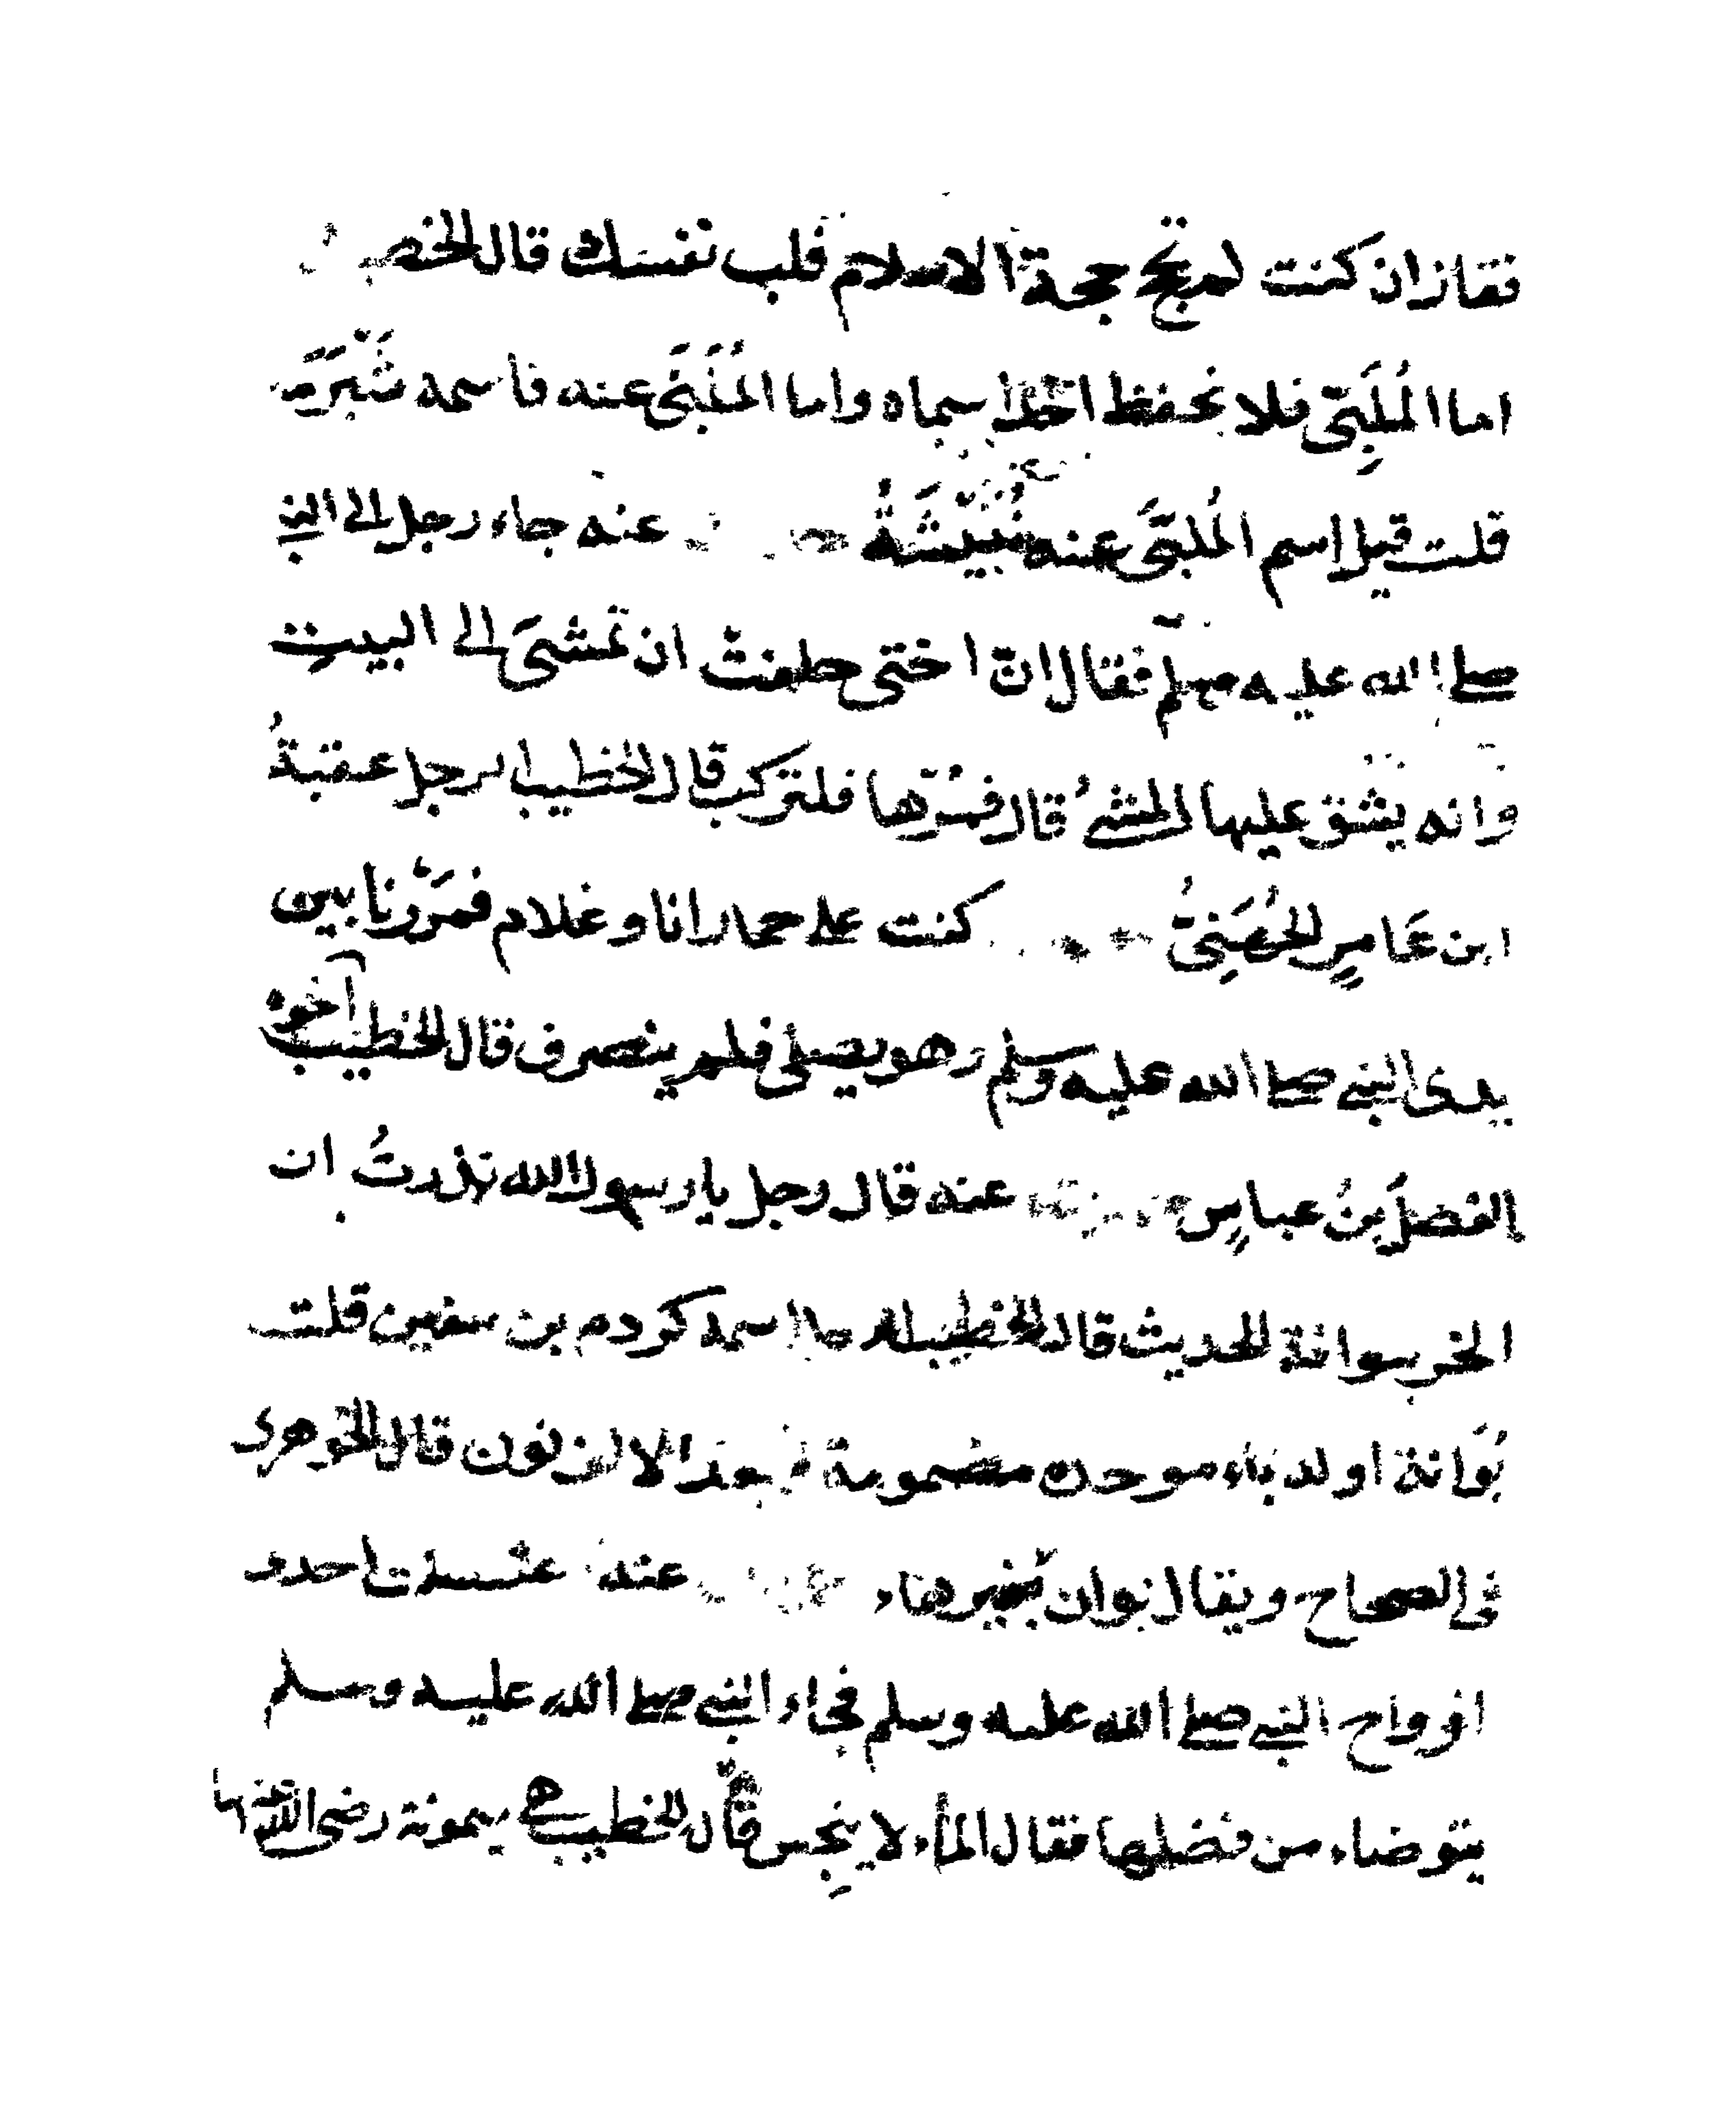 فقال ان كنت لم تحج حجة الاسلام فلب نفسك قال
اما المُلَبِّي فلا نحفظ احدا سماه واما المُلَبَّى عنه فاسمه شُبْرَمَة
قلت قيل اسم المُلبَّى عنه نُبَيْشَةُ عنه جاء رجل الى النبي
صلى الله عليه وسلم فقال انّ اختي حلفتْ ان تمشيَ الى البيتِ
وانه يشق عليها المشيُ قال فمُرْها فلتركب قال الخطيب الرجل عقبةُ
ابن عَامرٍ الجُهَنِيُّ كنت على حمار انا وغلام فمرَرْنا بين
يدي النبي صلى الله عليه وسلم وهو يصلي فلم ينصرف قال الخطيب آخوه
الفضلُ بنُ عباسٍ عنه قال رجل يا رسول الله نذرتُ ان
انحر ببوانة الحديث قال الخطيب اسمه كردم بن سفين قلت
بُوَانة اوله باء موحدة مضمومة وبعد الالف نون قال الجوهري
في الصحاح ويقال بوان بغير هاء عنه اغتسلت احدى
ازواج النبي صلى الله عليه وسلم فجاء النبي صلى الله عليه وسلم
يتوضاء من فضلها فقال الماء لا ينجس قال الخطيب هي ميمونة رضي الله عنها